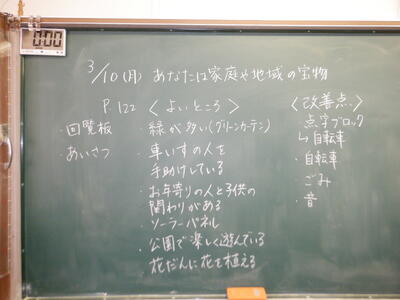 0:00
3/10(月) あなたは家庭や地域の宝物
P122 〈よいところ〉
・回覧板
あいさつ
・緑が多い(グリーンカーテン)
・車いすの人を
手助けしている
・お年寄りの人と子供の
関わりがある
・ソーラーパネル
・公園で楽しく遊んでいる
・花だんに花を植える
〈改善点〉
・点字ブロック
↳自転車
・自転車
・ごみ
・音